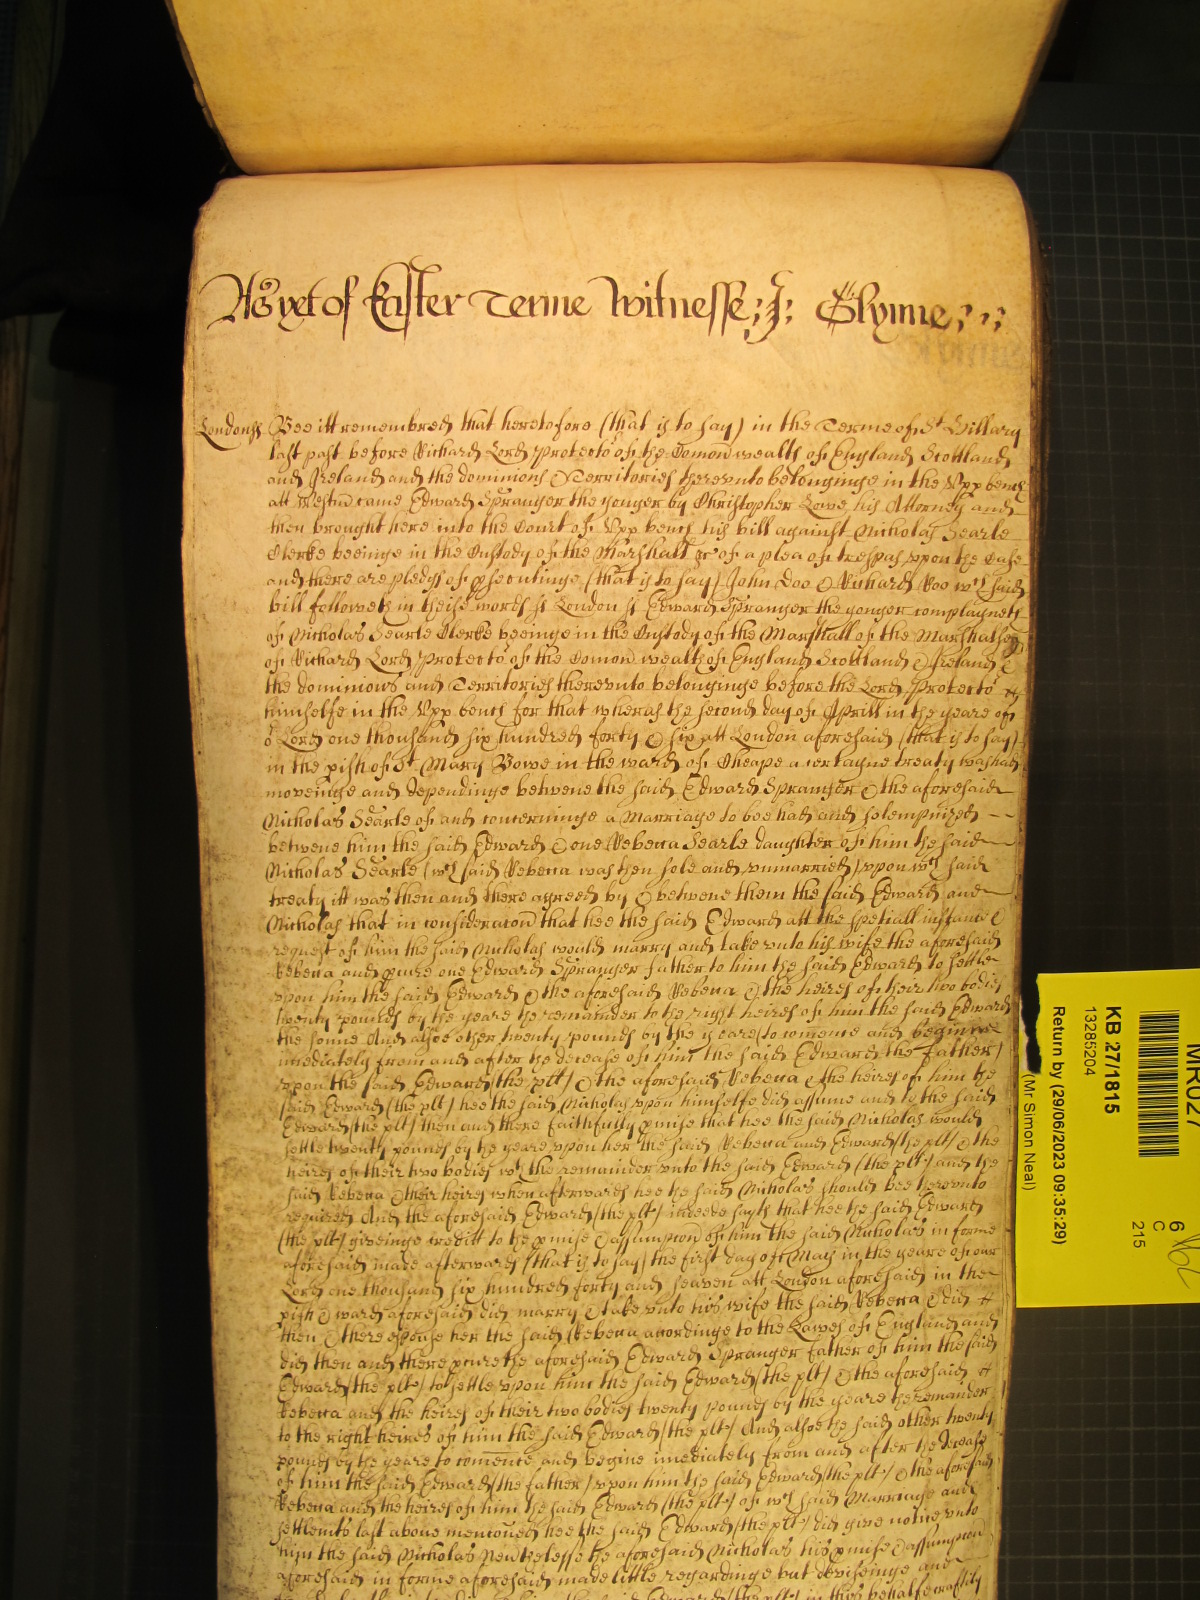 As yet of Easter Terme Witnesse: J: Glynne:
Londonss Bee itt remembred that heretofore (that is to say) in the Terme of St Hillary
last past before Richard Lord Protecto of the Comon wealth of England Scottland
and Ireland and the dominions & Territories therevnto belonginge in the Vpp bench
att Westm came Edward Spranger the yonger by Christopher Lowe his Attorney and
then brought here into the Court of Vpp bench his bill against Nicholas Searle
Clerke beeinge in the Custody of the Marshall &c of a plea of trespas vpon the Case
and there are pledgs of psecutinge (that is to say) John Doo & Richard Roo wch said
bill followeth in theise words ss London ss Edward Spranger the yonger complayneth
of Nicholas Searle Clerke beeinge in the Custody of the Marshall of the Marshalsey
of Richard Lord Protecto of the Comon wealth of England Scottland & Ireland &
the dominions and Territories therevnto belonginge before the Lord Protecto
himselfe in the Vpp bench for that wheras the second day of Aprill in the yeare of
o Lord one thousand six hundred forty & six att London aforesaid (that is to say)
in the pish of St Mary Bowe in the ward of Cheape a certayne treaty was had
moveinge and dependinge betwene the said Edward Spranger & the aforesaid
Nicholas Searle of and concerninge a Marriage to bee had and solempnized --
betwene him the said Edward & one Rebecca Searle daughter of him the said
Nicholas Searle (wch said Rebecca was then sole and vnmarried) vpon wch said
treaty itt was then and there agreed by & betwene them the said Edward and
Nicholas that in consideracon that hee the said Edward att the spetiall instance &
request of him the said Nicholas would marry and take vnto his wife the aforesaid
Rebecca and pcure one Edward Spranger father to him the said Edward to settle
vpon him the said Edward & the aforesaid Rebecca & the heires of their two bodies
twenty pounds by the yeare the remainder to the right heires of him the said Edward
the sonne And alsoe other twenty pounds by the yeare (to comence and beginne
imediately from and after the decease of him the said Edward the father)
vpon the said Edward (the plt) & the aforesaid Rebecca & the heires of him the
said Edward (the plt) hee the said Nicholas vpon himselfe did assume and to the said
Edward (the plt) then and there faithfully pmise that hee the said Nicholas would
settle twenty pounds by the yeare vpon her the said Rebecca and Edward (the plt) & the
heires of their two bodies wth the remainder vnto the said Edward (the plt) and the
said Rebecca & their heires when afterwards hee the said Nicholas should bee therevnto
required And the aforesaid Edward (the plt) indeede sayth that hee the said Edward
(the plt) giveinge creditt to the pmise & assumpcon of him the said Nicholas in forme
aforesaid made afterwards (that is to say) the first day of May in the yeare of our
Lord one thousand six hundred forty and seaven att London aforesaid in the
pish & ward aforesaid did marry & take vnto his wife the said Rebecca & did
then & there espouse her the said Rebecca accordinge to the Lawes of England and
did then and there pcure the aforesaid Edward Spranger father of him the said
Edward (the plt) to settle vpon him the said Edward (the plt) & the aforesaid
Rebecca and the heires of their two bodies twenty pounds by the yeare the remainder
to the right heires of him the said Edward (the plt) And alsoe the said other twenty
pounds by the yeare to comence and begine imediately from and after the decease
of him the said Edward (the father) vpon him the said Edward (the plt) & the aforesaid
Rebecca and the heires of him the said Edward (the plt) of wch said Marriage and
settlemts last above menconed hee the said Edward (the plt) did give notice vnto
him the said Nicholas Nevthelesse the aforesaid Nicholas his pmise & assumpcon
aforesaid in forme aforesaid made little regardinge but deviseinge and
said Edward (the plt) in this behalfe craftily
MR027
KB 27/1815
13285204
Return by (29/06/2023 09:35:29)
(Mr Simon Neal)
6
C
215